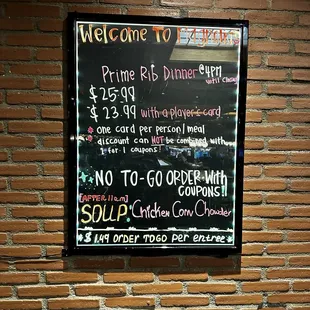 Welcome To
Prime Rib Dinner @ 4PM
until Close
$25.99
$23.99 with a player's card
one card per person/meal
discount can NOT be combined with
2 for 1 coupons!
NO TO-GO ORDER With
COUPONS!!
[AFTER 11am]
SOUP: Chicken Corn Chowder
$1.49 ORDER TO GO per entree